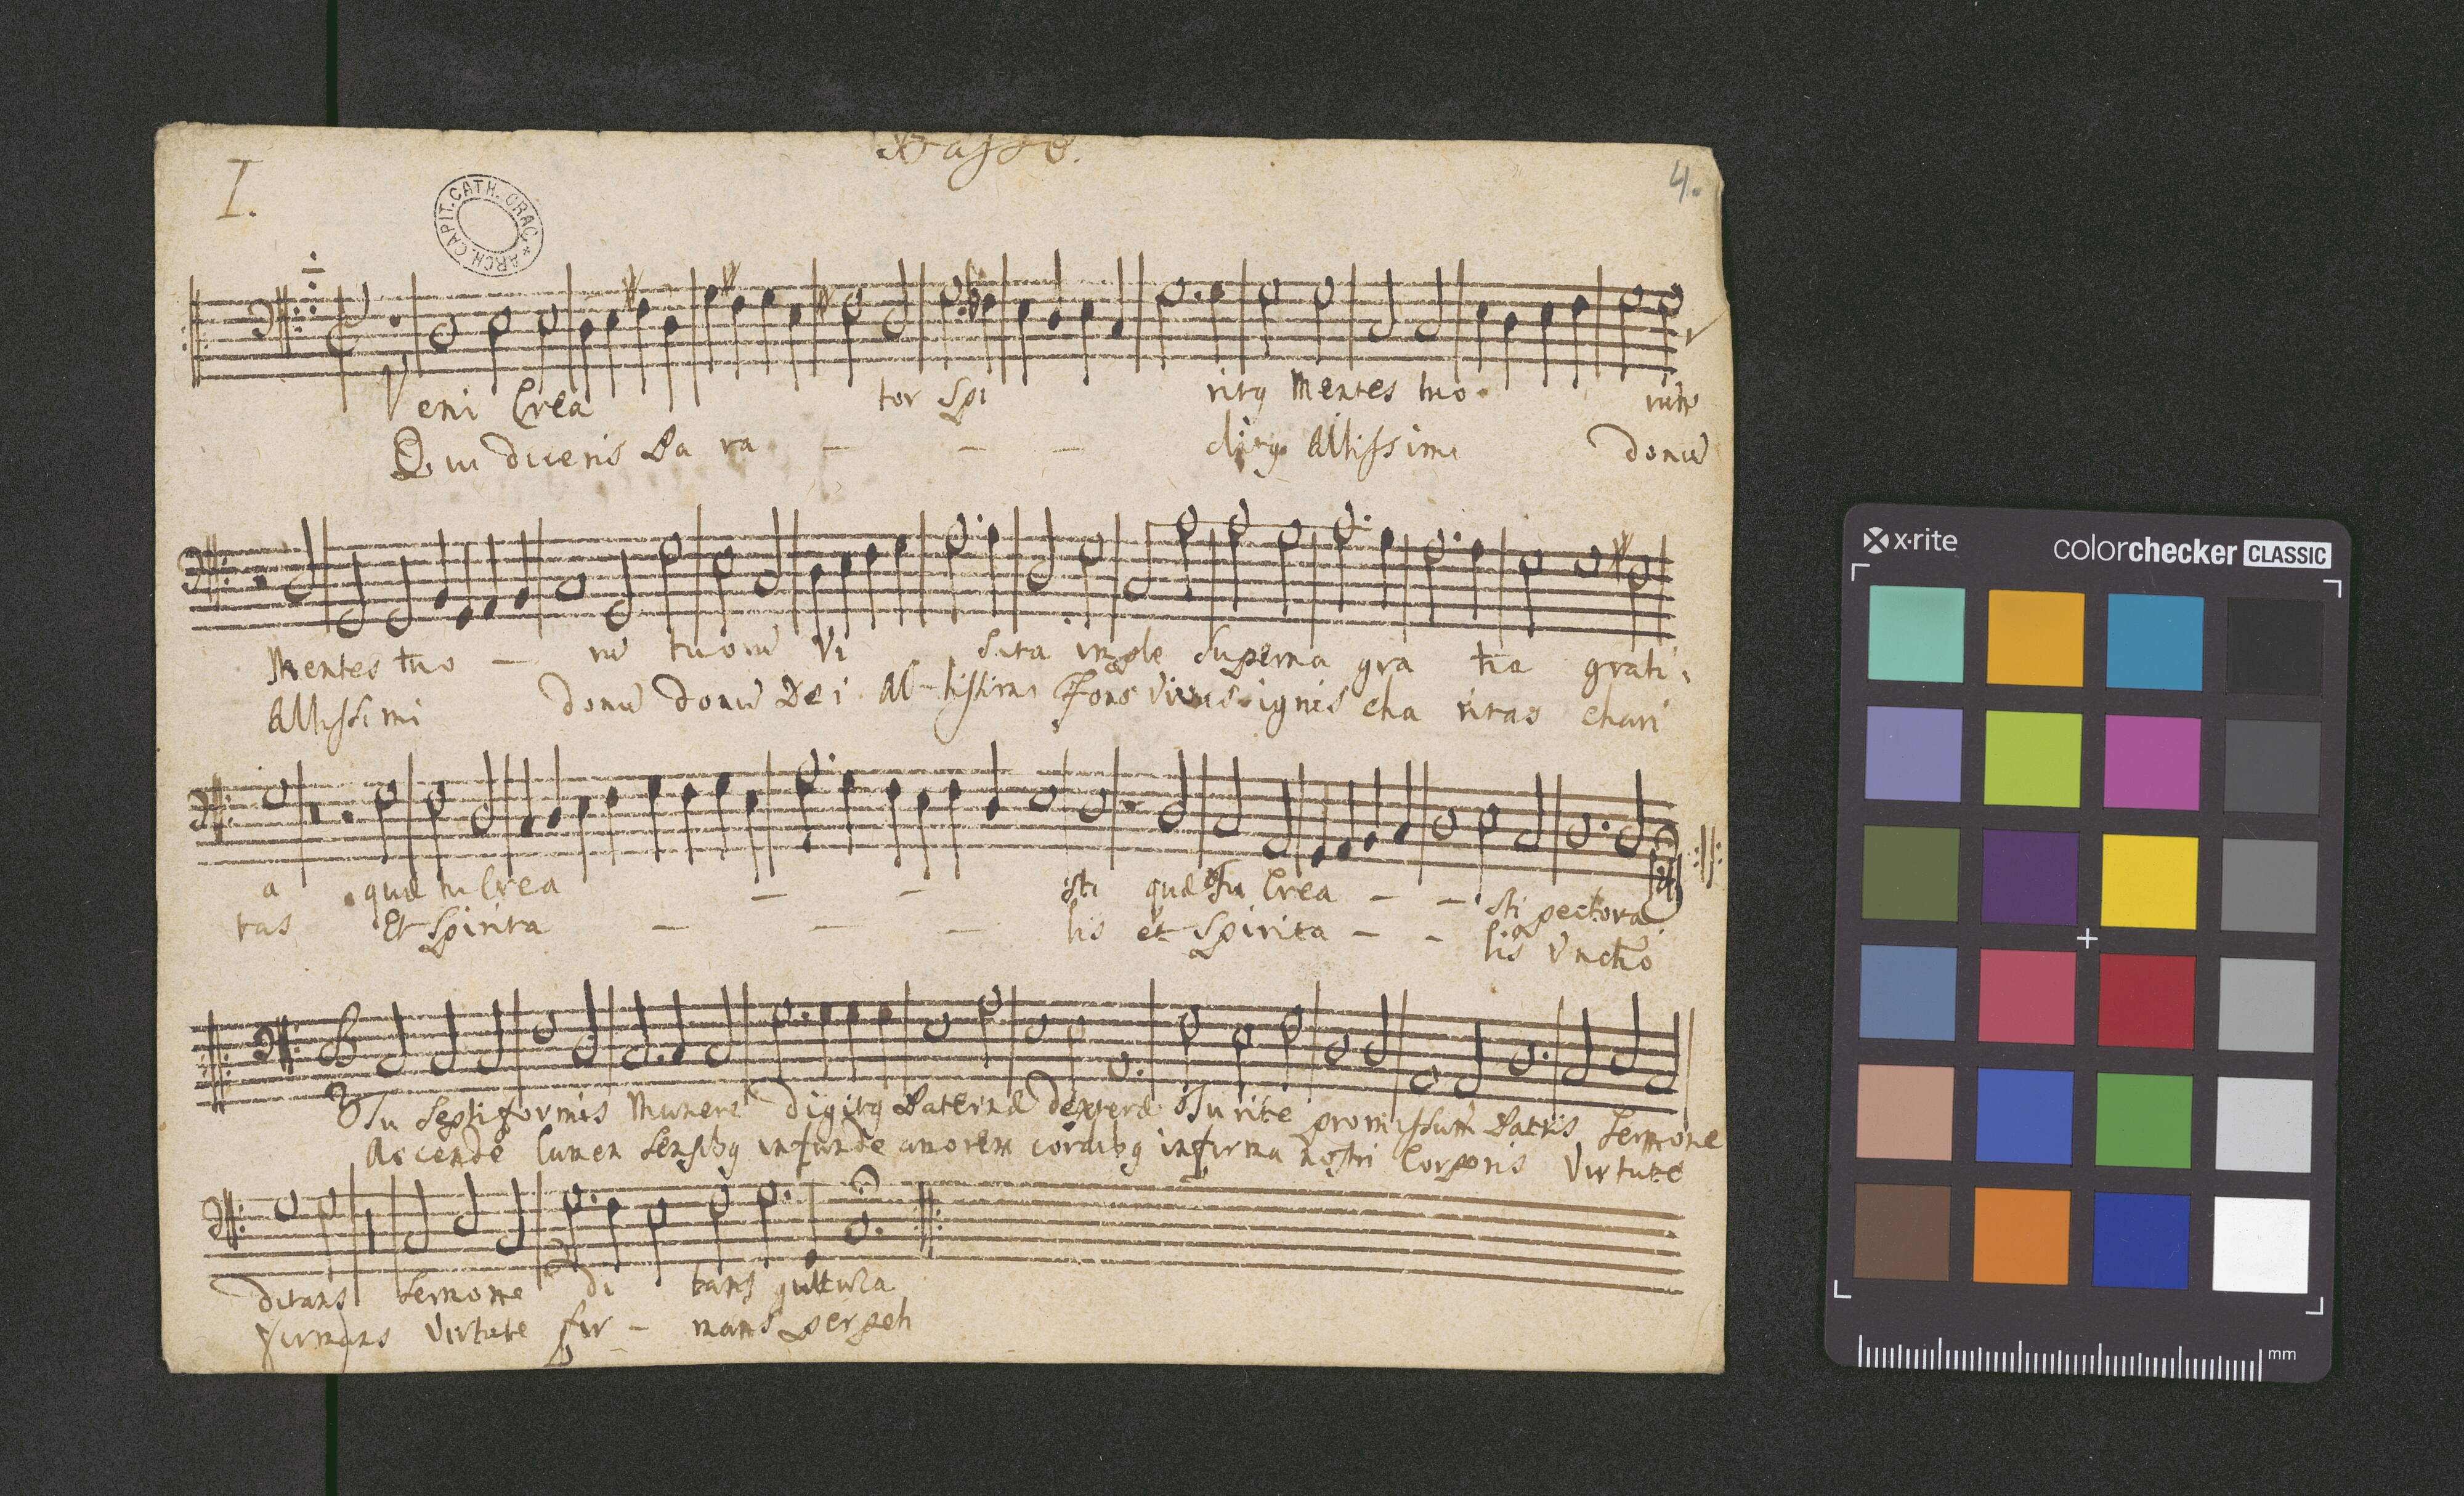 Basso.
I.
4.
ARCH. CAPIT. CATH. CRAC. *
Veni Crea tor Spi ritq Mentes tuo
Qui diceris Pa ra - - - clitq Altissimi donu
Mentes tuo - ru tuoru Vi sita imple Superna gra tia grati
Altissimi donu donu Dei Al-tissimi Fons Vivus ignis cha ritas chari
a quæ tu Crea - - sti quæ Tu Crea - - sti pectora
tas Et Spirita - - - lis et Spirita - - lis Vnctio
3
Tu Septiformis Munere digitq Paternæ dexteræ Tu rite promissum Patris Sermone
Accende lumen Sensibq infunde amorem cordibq infirma nostri Corporis Virtute
ditans Sermone di tans guttura
firmans Virtute fir - mans perpeti
x·rite
colorchecker CLASSIC
mm